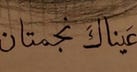 عيناكَ نجمتان